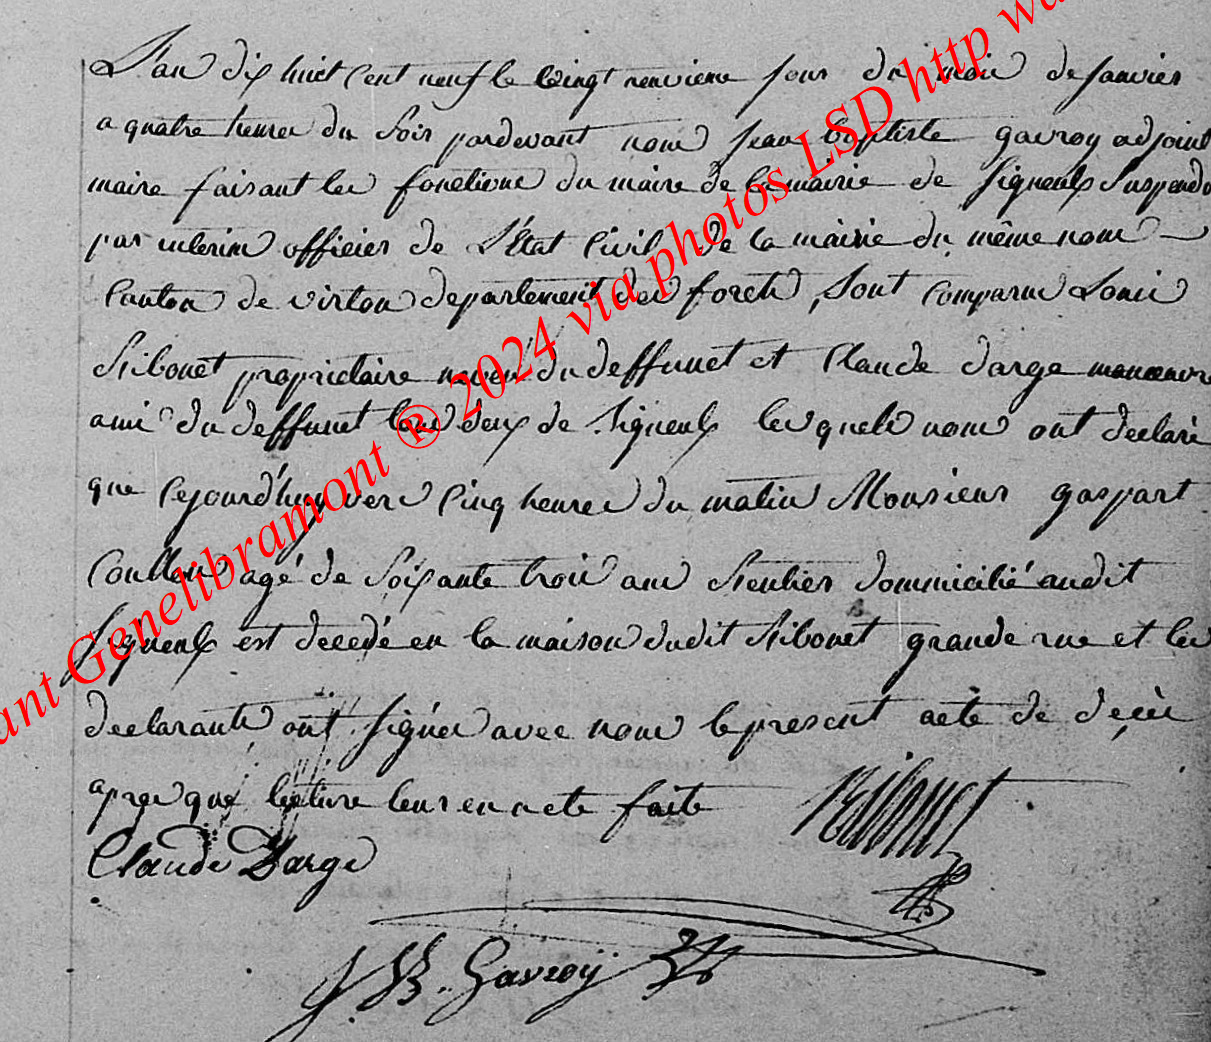 L'an dix huict cent neuf le vingt neuvieme jour du mois de janvier
a quatre heures du soir pardevant nous jean baptiste gavroy adjoint
maire faisant les fonctions du maire de la mairie de signeulx suspendu
par interim officier de L'Etat Civil de la mairie du même nom
Canton de virton departement des forets, sont comparus Louis
proprietaire neveu du deffunct et Claude darge manoeuvre
ami du deffunct tous deux de signeulx lesquels nous ont declaré
que cejourd'huy vers cinq heures du matin Monsieur gaspart
agé de soixante trois ans rentier domicilié audit
signeulx est decedé en la maison dudit grande rue et les
declarants ont signés avec nous le present acte de deçès
apres que lecture leur en a ete faite
Claude Darge
J. B. Gavroy
ant Genelibramont ® 2024 via photos LSD http w